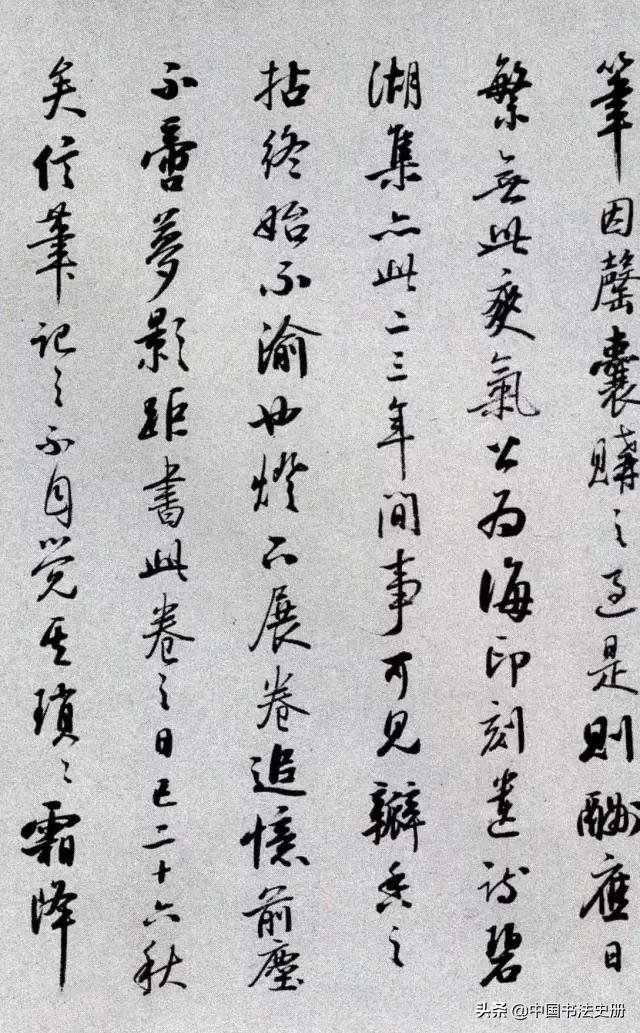 筆因罄囊購之過是則酬應日
繁無此爽氣公為海印刻遺詩碧
湖集亦此二三年間事可見瓣香之
拈終始不渝也燈下展卷追憶前塵
不啻夢影距書此卷之日已二十六秋
矣信筆記之不自覺其瑣瑣霜降
头条 @中国书法史册